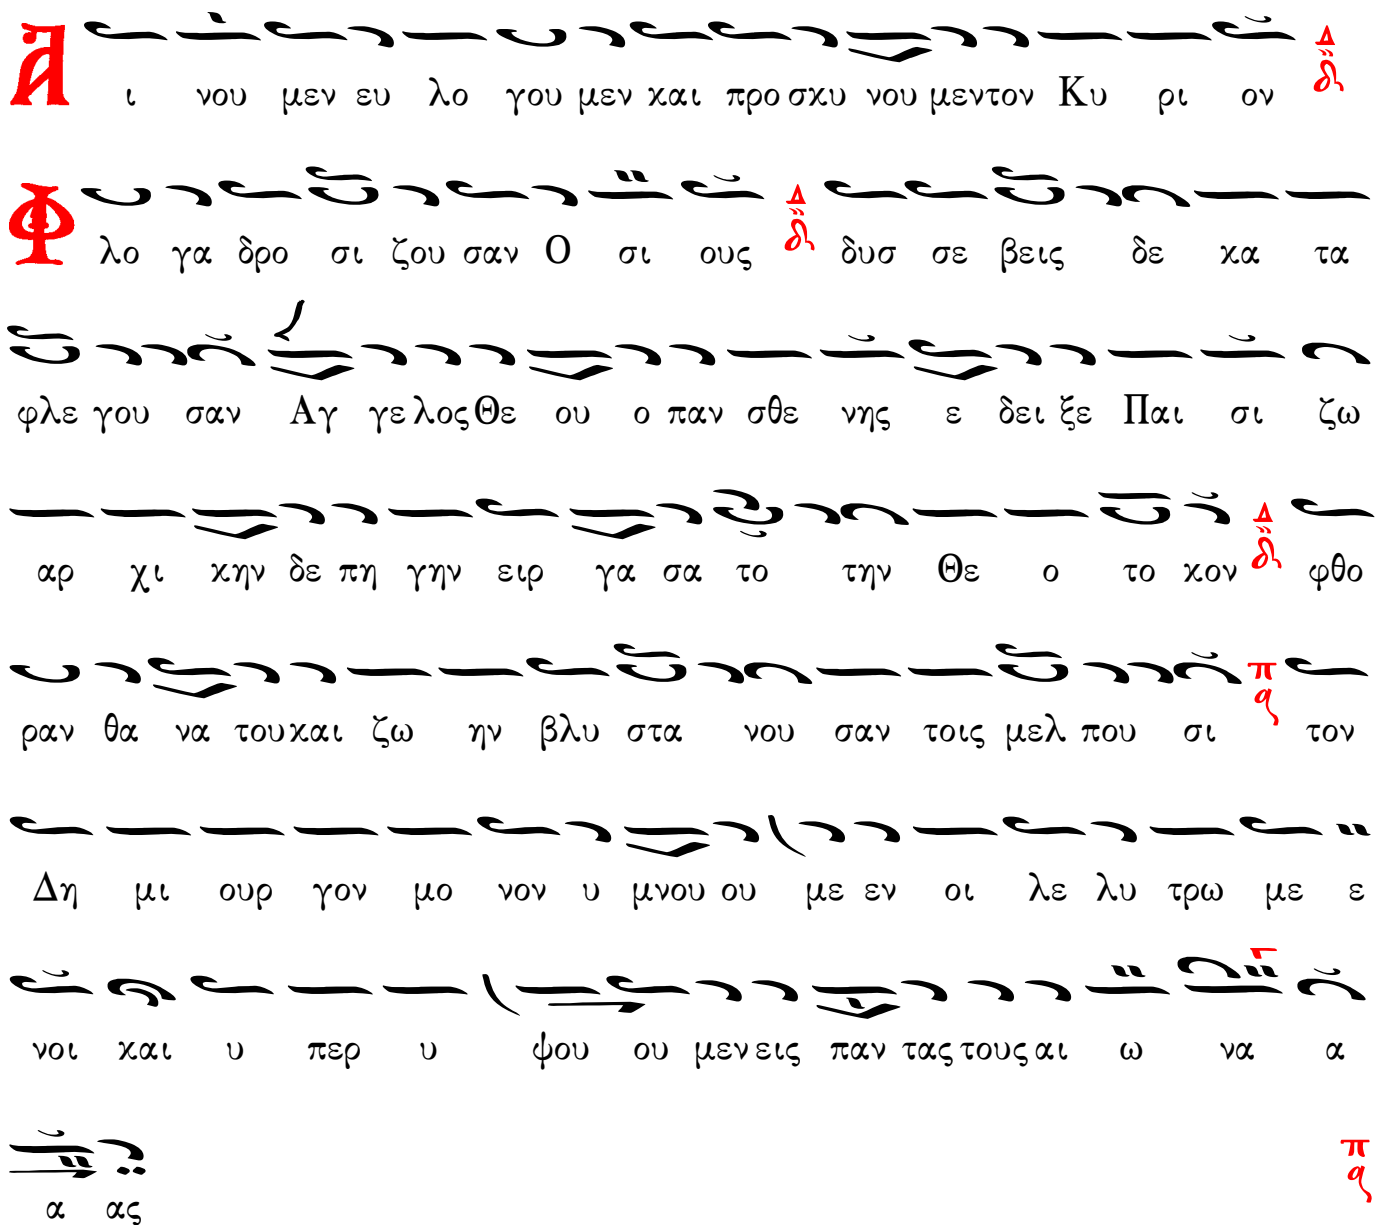 Α ι νου μεν ευ λο γου μεν και προ σκυ νου μεν τον Κυ ρι ον Δ δι
Φ λο γα δρο σι ζου σαν Ο σι ους Δ δι δυσ σε βεις δε κα τα
φλε γου σαν Αγ γε λος Θε ου ο παν σθε νης ε δει ξε Παι σι ζω
αρ χι κην δε πη γην ειρ γα σα το την Θε ο το κον Δ δι φθο
ραν θα να του και ζω ην βλυ στα νου σαν τοις μελ που σι π α τον
Δη μι ουρ γον μο νον υ μνου ου με εν οι λε λυ τρω με ε
νοι και υ περ υ ψου ου μεν εις παν τας τους αι ω να α
α ας π α